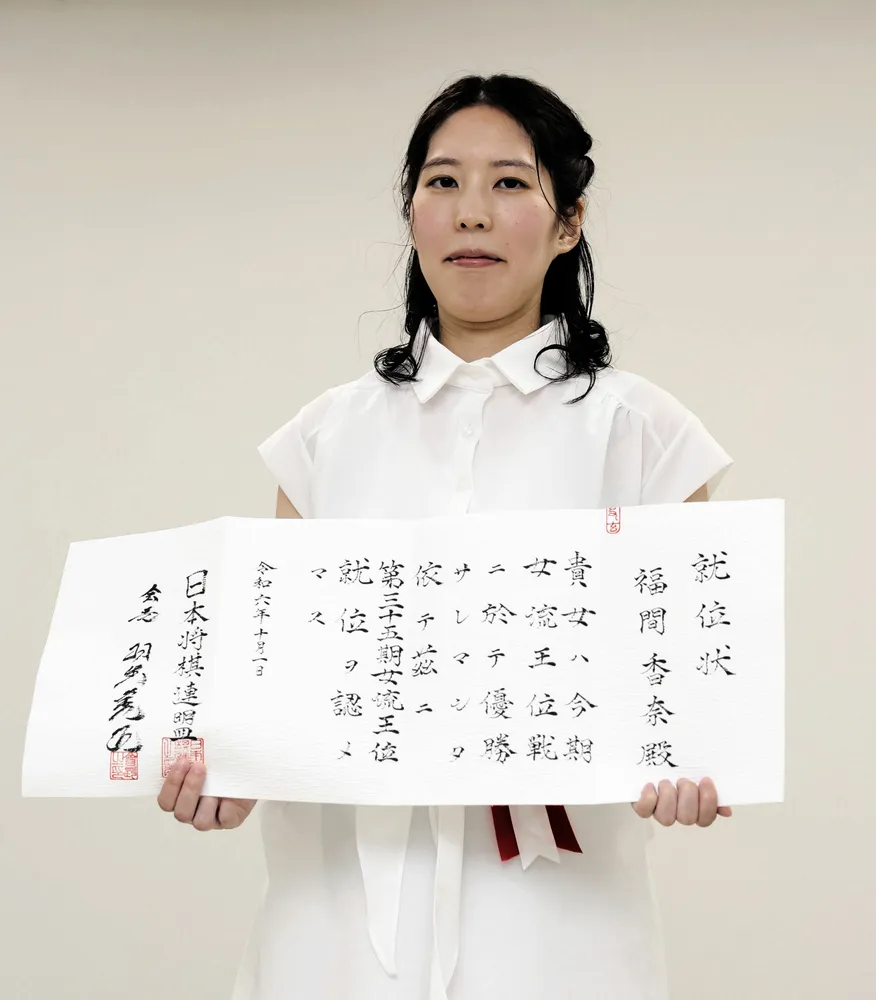 就位状
福間香奈殿
貴女ハ今期
女流王位戦
ニ於テ優勝
サレマシタ
依テ茲ニ
第三十五期女流王位
就位ヲ認メ
マス
令和六年十月一日
日本将棋連盟
会長 羽生善治